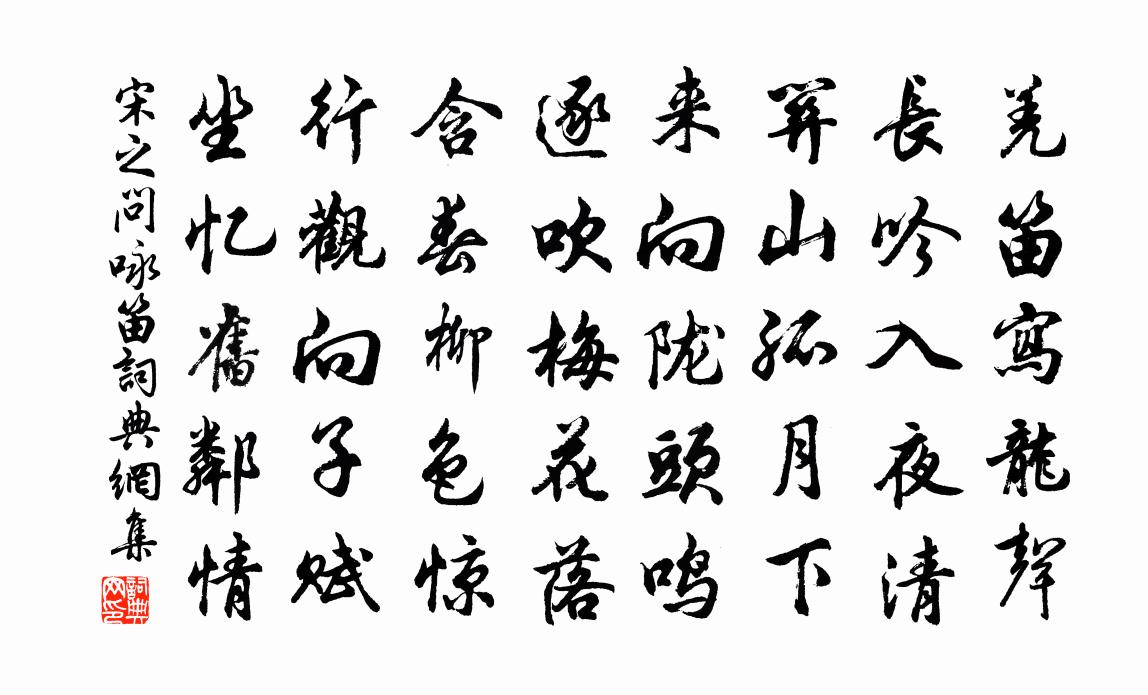 羌笛寫龍聲
長吟入夜清
關山孤月下
来向陇頭鳴
逐吹梅花落
含春柳色惊
行觀向子赋
坐忆舊鄰情
宋之問咏笛詞典網集
詞典網印